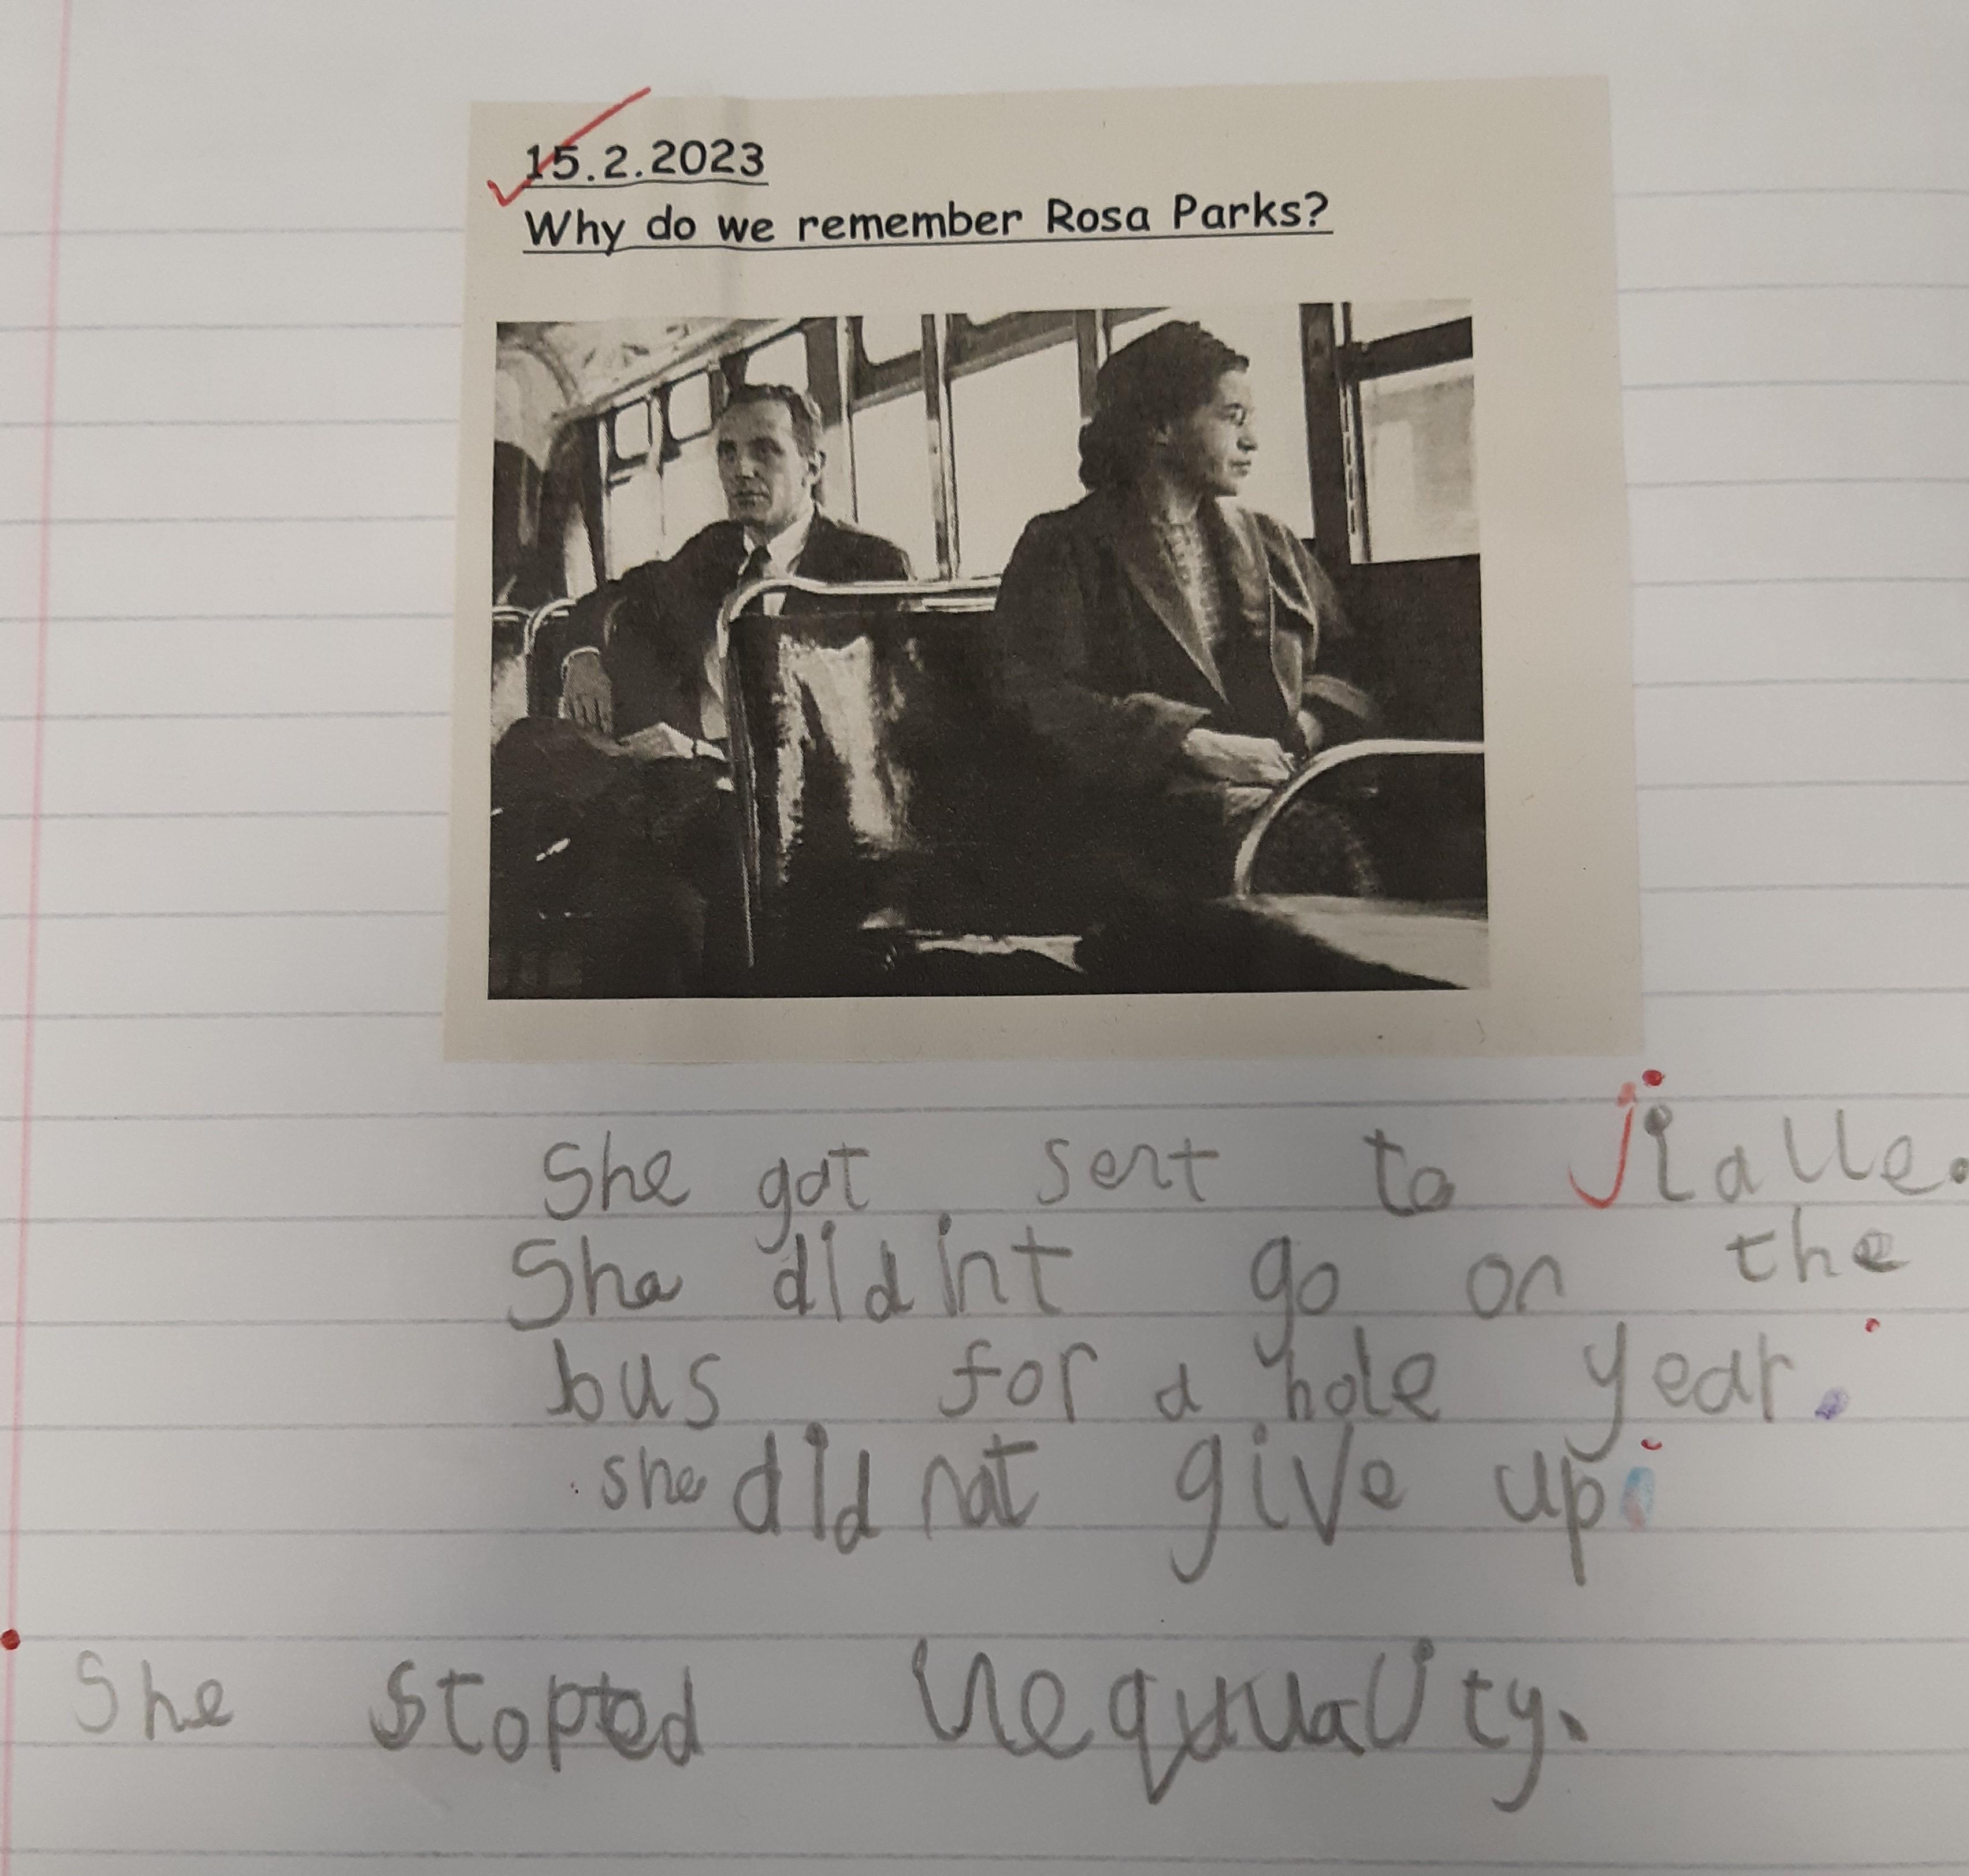 15.2.2023
Why do we remember Rosa Parks?
She got sent to jialle.
She didint go on the
bus for a hole year.
she did not give up.
She stopted inequuality.